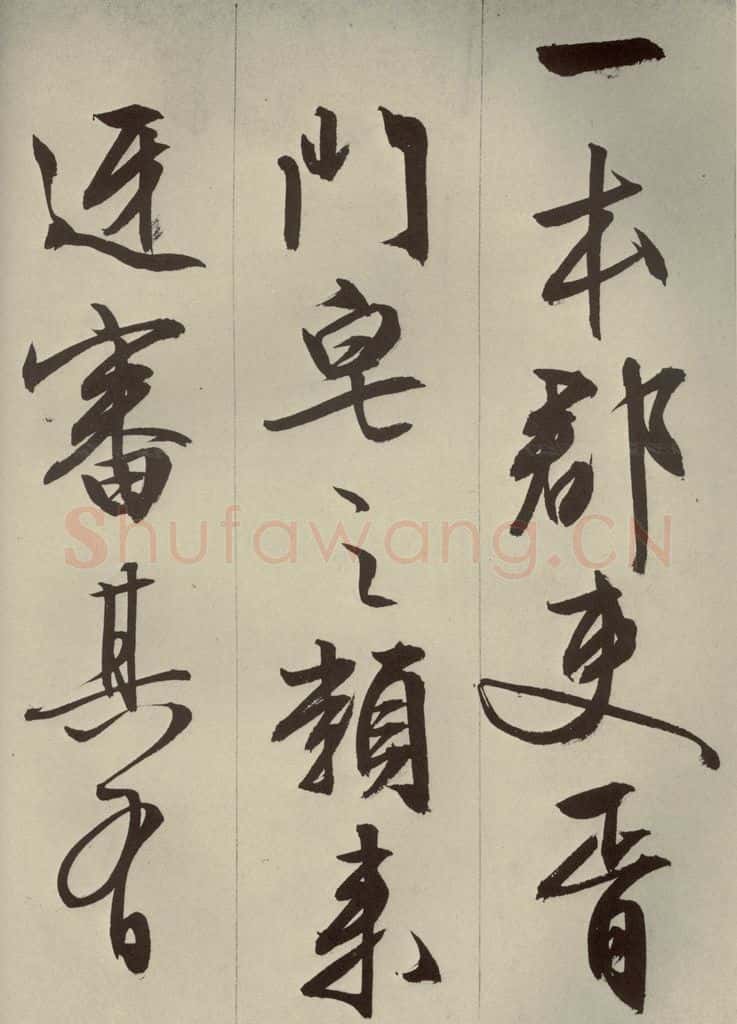 一本郡吏胥
門皂之類来
迓審其有
Shufawang.CN